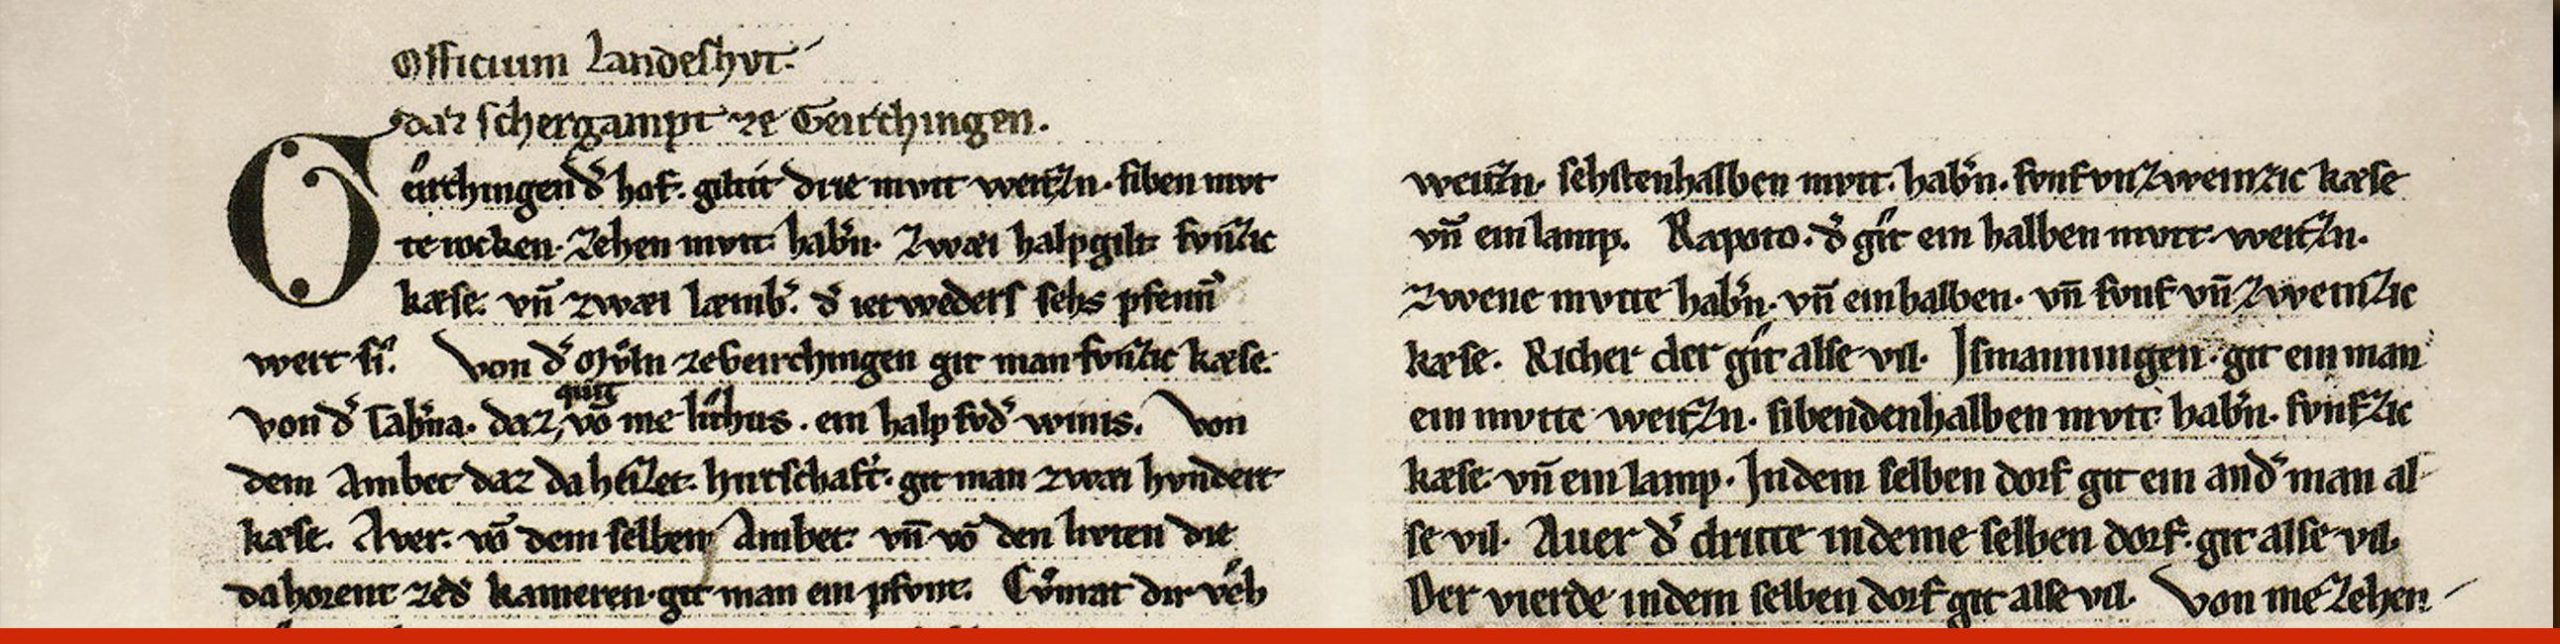 Officium Landeshvt.
daz schergampt ze Geirchingen.
Geirchingen d᾽ hof. giltit drie mvtt weitzn. siben mvt
te rocken. Zehen mvtt hab᾽n. Zwæi halpgilt fvnfzic
kæse. vn̄ zwæi læmb᾽. d᾽ ietweders sehs pfenn᾽
wert si᾽. Von d᾽ Mv̊ln zeGeirchingen git man fvnfzic kæse.
von d᾽ Tab᾽na. daz, vō me lithus. ein halp fvd᾽ winis. Von
dem Ambet daz da heizet. hirtschaft. git man zwæi hvndert
kæse. Aver. vō dem selben Ambet. vn̄ vō den livten die
da horent zed᾽ kameren. git man ein pfvnt. Cv̊nrat
wæitzn. sehstenhalben mvtt. hab᾽n. fvnf vn̄ Zweinzic kæse
vn̄ ein lamp. Rapoto. d᾽ git ein halben mvtt. weitzn.
Zwene mvtte hab᾽n. vn̄ ein halben. vn̄ fvnf vn̄ Zweinzic
kæse. Richer der git alse vil. Ismanningen. git ein man
ein mvtte weitzn. sibendenhalben mvtt hab᾽n. fvnfzic
kæse vn̄ ein lamp. In dem selben dorf git ein and᾽ man al
se vil. Auer d᾽ dritte indeme selben dorf. git alse vil.
Der vierde indem selben dorf git alse vil. Von me Zehen